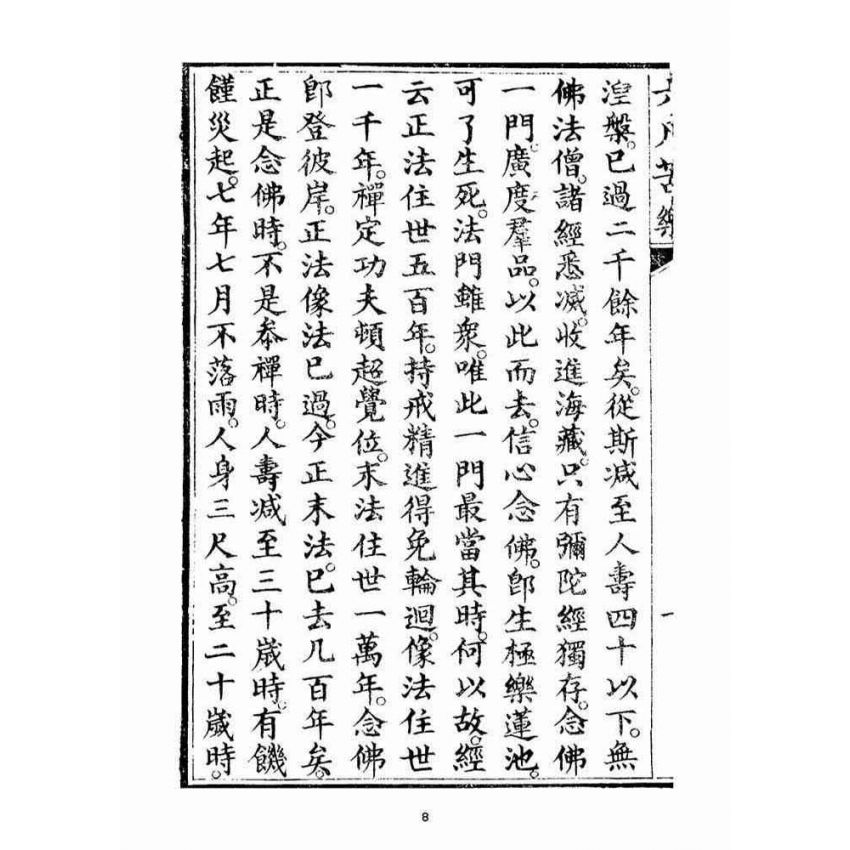 湼槃。已過二千餘年矣。從斯减至人壽四十以下。無
佛法僧。諸經悉滅。收進海藏。只有彌陀經獨存。念佛
一門。廣度羣品。以此而去。信心念佛。卽生極樂蓮池。
可了生死。法門雖衆。唯此一門最當其時。何以故。經
云正法住世五百年。持戒精進得免輪迴。像法住世
一千年。禪定功夫頓超覺位。末法住世一萬年。念佛
卽登彼岸。正法像法已過。今正末法。已去几百年矣。
正是念佛時。不是叅禪時。人壽减至三十嵗時。有饑
饉災起。七年七月不落雨。人身三尺高。至二十嵗時。
8